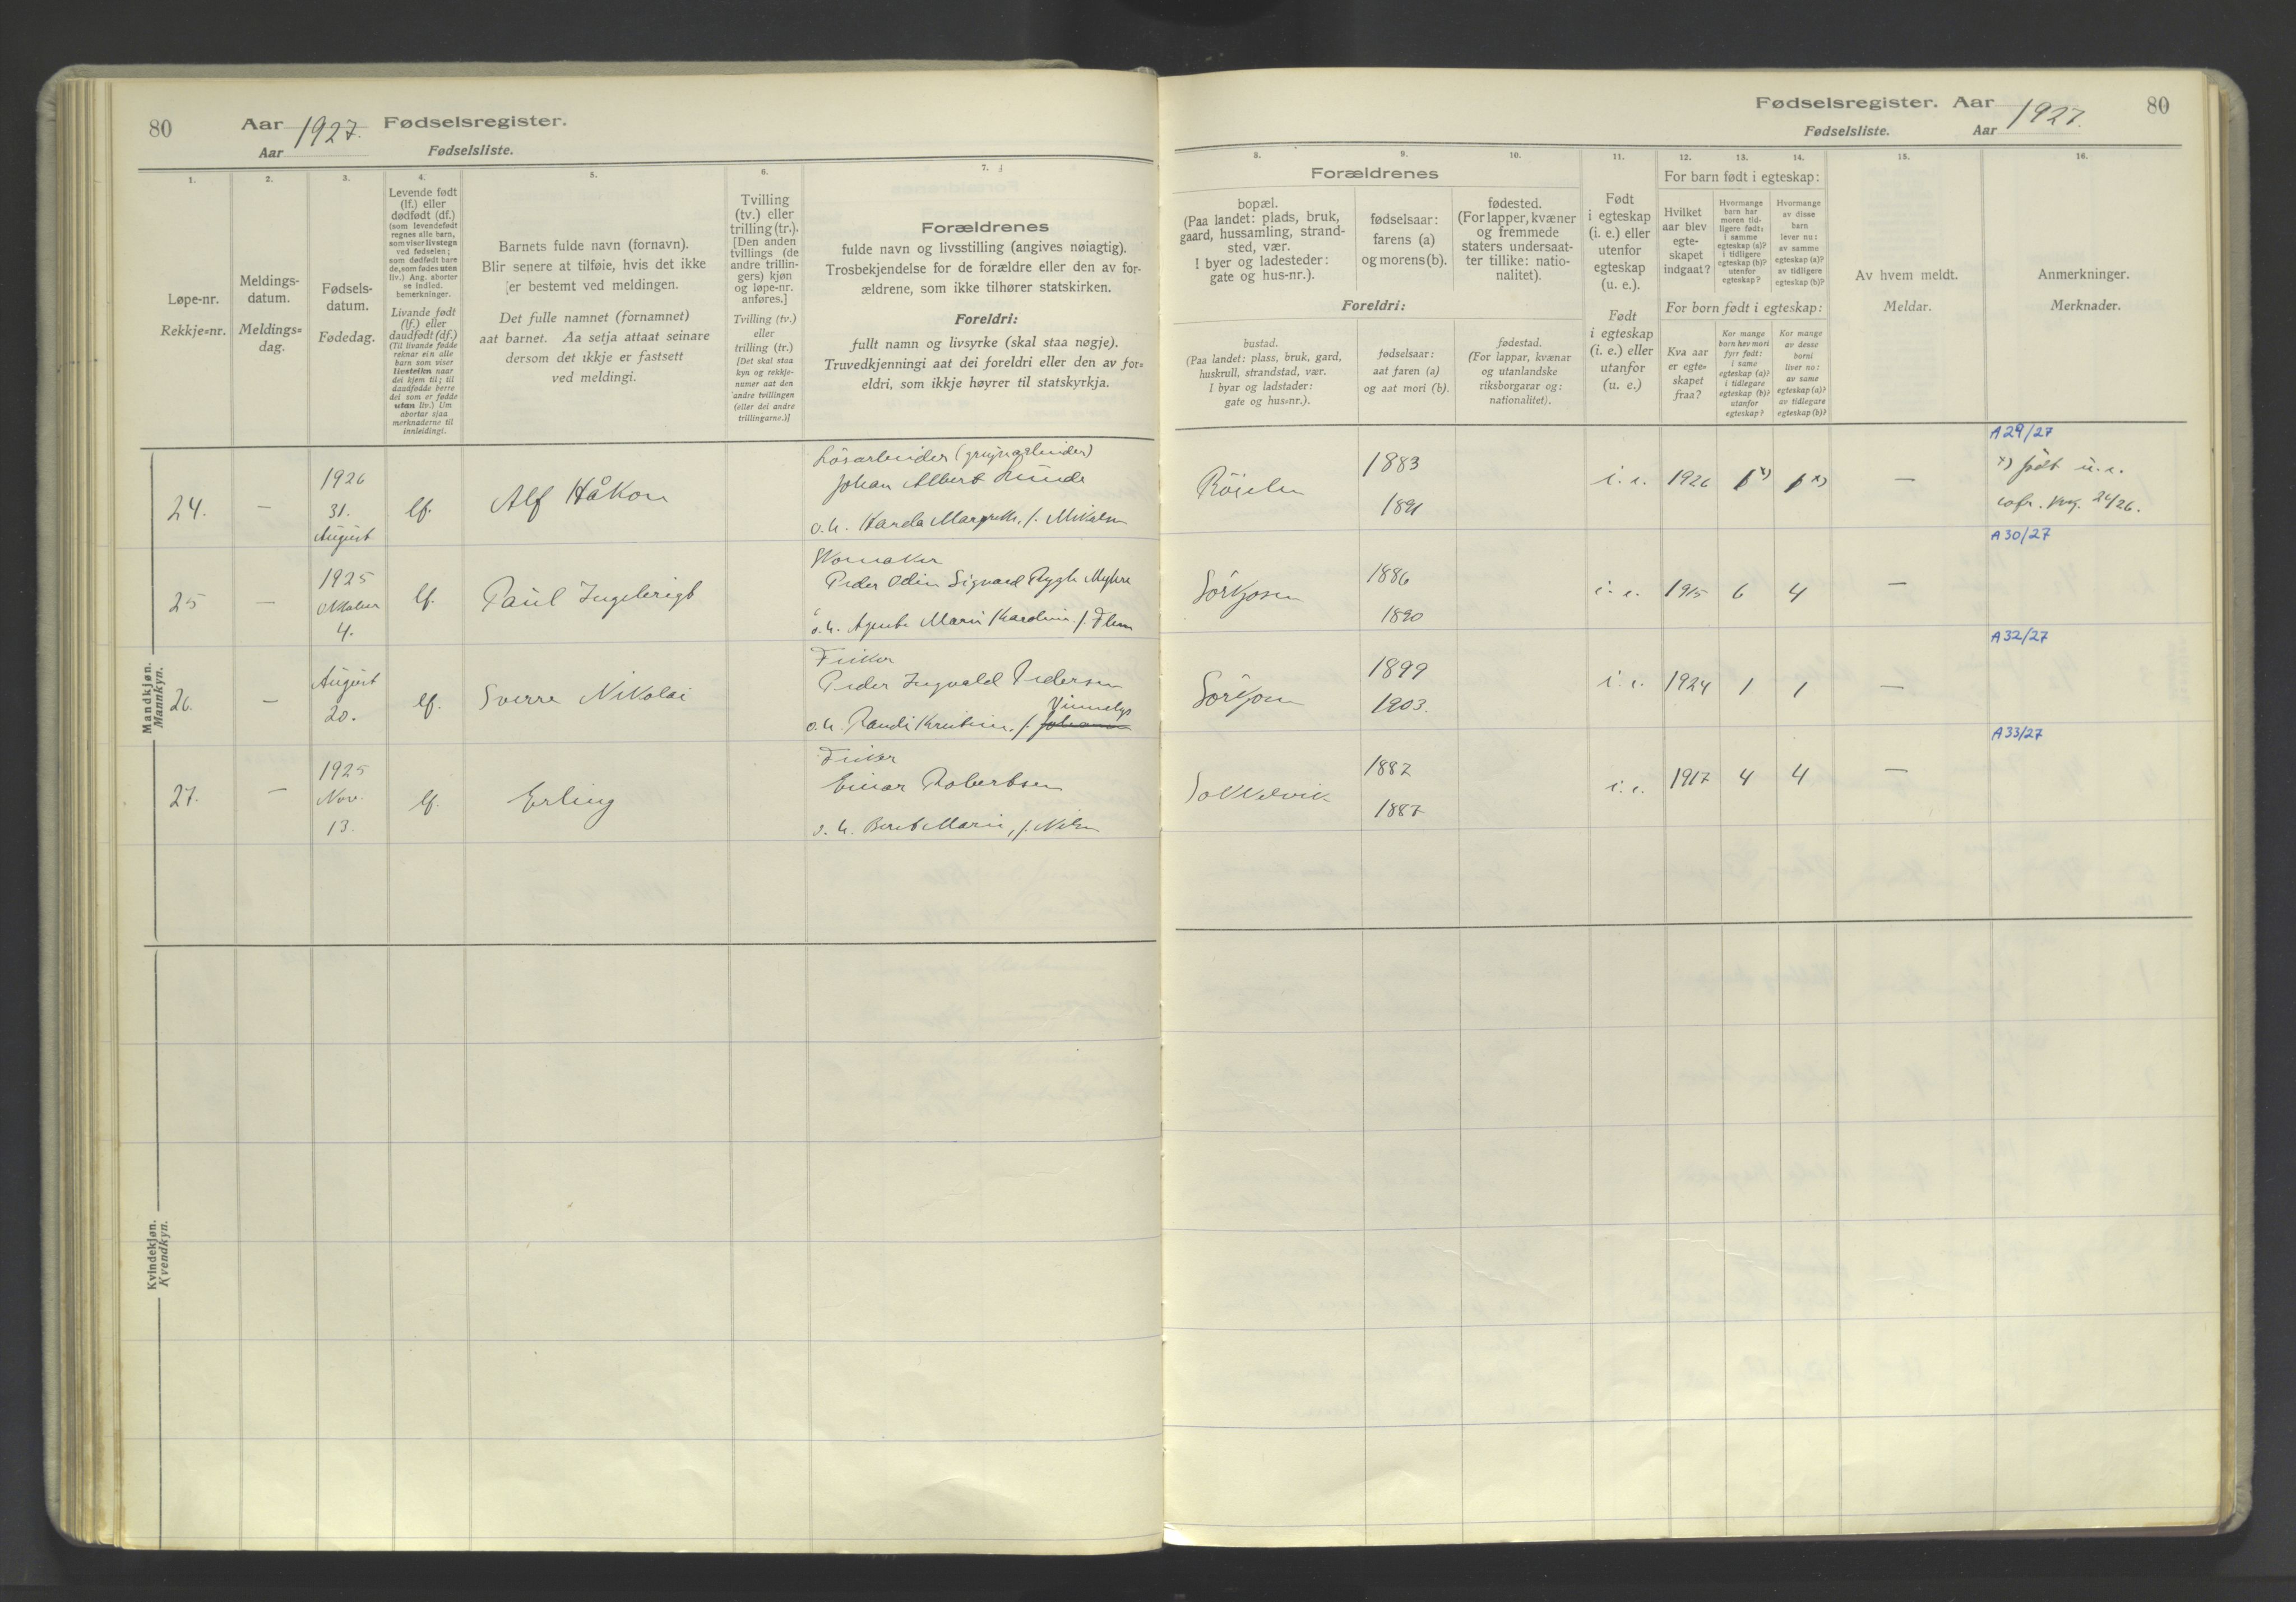 80
Aar 1927. Fødselsregister.
Aar Fødselsliste.
1.
Løpe-nr.
Rekkje=nr.
2.
Meldings-
datum.
Meldings=
dag.
3.
Fødsels-
datum.
Fødedag.
4.
Levende født
(lf.) eller
dødfødt (df.)
(som levendefødt
regnes alle barn,
som viser livstegn
ved fødselen;
som dødfødt bare
de, som fødes uten
liv.) Ang. aborter
se indled.
bemerkninger.
Livande født
(lf.) eller
daudfødt (df.)
(Til livande fødde
reknar ein alle
barn som viser
livsteikn naar
dei kjem til; til
daudfødde berre
dei som er fødde
utan liv.) Um
abortar sjaa
merknaderne til
innleidingi.
5.
Barnets fulde navn (fornavn).
Blir senere at tilføie, hvis det ikke
er bestemt ved meldingen.
Det fulle namnet (fornamnet)
aat barnet. Aa setja attaat seinare
dersom det ikkje er fastsett
ved meldingi.
6.
Tvilling
(tv.) eller
trilling (tr.).
[Den anden
tvillings (de
andre trillin-
gers) kjøn
og løpe-nr.
anføres.]
Tvilling (tv.)
eller
trilling (tr.)
[Det skal staa
kyn og rekkje-
numer aat den
andre tvillingen
(eller dei andre
trillingarne.)]
7.
Forældrenes
fulde navn og livsstilling (angives nøiagtig).
Trosbekjendelse for de forældre eller den av for-
ældrene, som ikke tilhører statskirken.
Foreldri:
fullt namn og livsyrke (skal staa nøgje).
Truvedkjenningi aat dei foreldri eller den av for=
eldri, som ikkje høyrer til statskyrkja.
Mandkjøn.
Mannkyn.
24.
—
1926
31.
August
lf.
Alf Håkon
Lösarbeider (gruvearbeider)
Johan Albert Lunde
o. h. Harda Margreth, f. Mikalsen
25
—
1925
Oktober
4.
lf.
Paul Ingebrigt
Skomaker
Peder Odin Sigvard Rygh Myhre
o. h. Agnete Marie Karoline f.
26.
—
August
20.
lf.
Sverre Nikolai
Fisker
Peder Ingvald Pedersen
Vinnelys
o. h. Randi Kristine, f. Johansen
27.
—
1925
Nov.
13.
lf.
Erling
Fisker
Einar Robertsen
o. h. Beret Marie, f. Nilsen
Kvindekjøn.
Kvendkyn.
Fødselsregister. Aar 1927. 80
Fødselsliste. Aar
8.
9.
10.
Forældrenes
bopæl.
(Paa landet: plads, bruk,
gaard, hussamling, strand-
sted, vær.
I byer og ladesteder:
gate og hus-nr.).
fødselsaar:
farens (a)
og morens (b).
fødested.
(For lapper, kvæner
og fremmede
staters undersaat-
ter tillike: natio-
nalitet).
Foreldri:
bustad.
(Paa landet: plass, bruk, gard,
huskrull, strandstad, vær.
I byar og ladstader:
gate og hus=nr.).
fødselsaar:
aat faren (a)
og aat mori (b).
fødestad.
(For lappar, kvænar
og utanlandske
riksborgarar og:
nationalitet).
11.
Født
i egteskap
(i. e.) eller
utenfor
egteskap
(u. e.).
Født
i egteskap
(i. e.) eller
utanfor
(u. e.)
12.
13.
14.
For barn født i egteskap:
Hvilket
aar blev
egte-
skapet
indgaat?
Hvormange
barn har
moren tid-
ligere født:
i samme
egteskap (a)?
i tidligere
egteskap (b)?
utenfor
egteskap?
Hvormange
av disse
barn
lever nu:
av samme
egteskap (a)?
av tidligere
egteskap (b)?
For born født i egteskap:
Kva aar
er egte=
skapet
fraa?
Kor mange
born hev mori
fyrr født:
i same
egteskap (a)?
i tidlegare
egteskap (b)?
utanfor
egteskap?
Kor mange
av desse
borni
liver no:
av same
egteskap (a)?
av tidlegare
egteskap (b)?
15.
Av hvem meldt.
Meldar.
16.
Anmerkninger.
Merknader.
Röjelen
1883
1891
i. e.
1926
1 x)
1 x)
—
A 29/27
x) født u. e.
cofr. 24/26.
Sörkjosen
1886
1890
i. e.
1915
6
4
—
A 30/27
Sörkjosen
1899
1903.
i. e.
1924
1
1
—
A 32/27
Sokkelvik
1882
1887
i. e.
1917
4
4
—
A 33/27